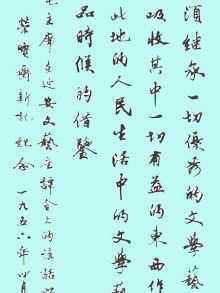 須繼承一切優秀的文學藝
吸收其中一切有益的東西作
此地的人民生活中的文學藝
品時候的借鑒
主席在延安文藝座談會上的講話
榮寶齋新記紀念 一九五六年四月